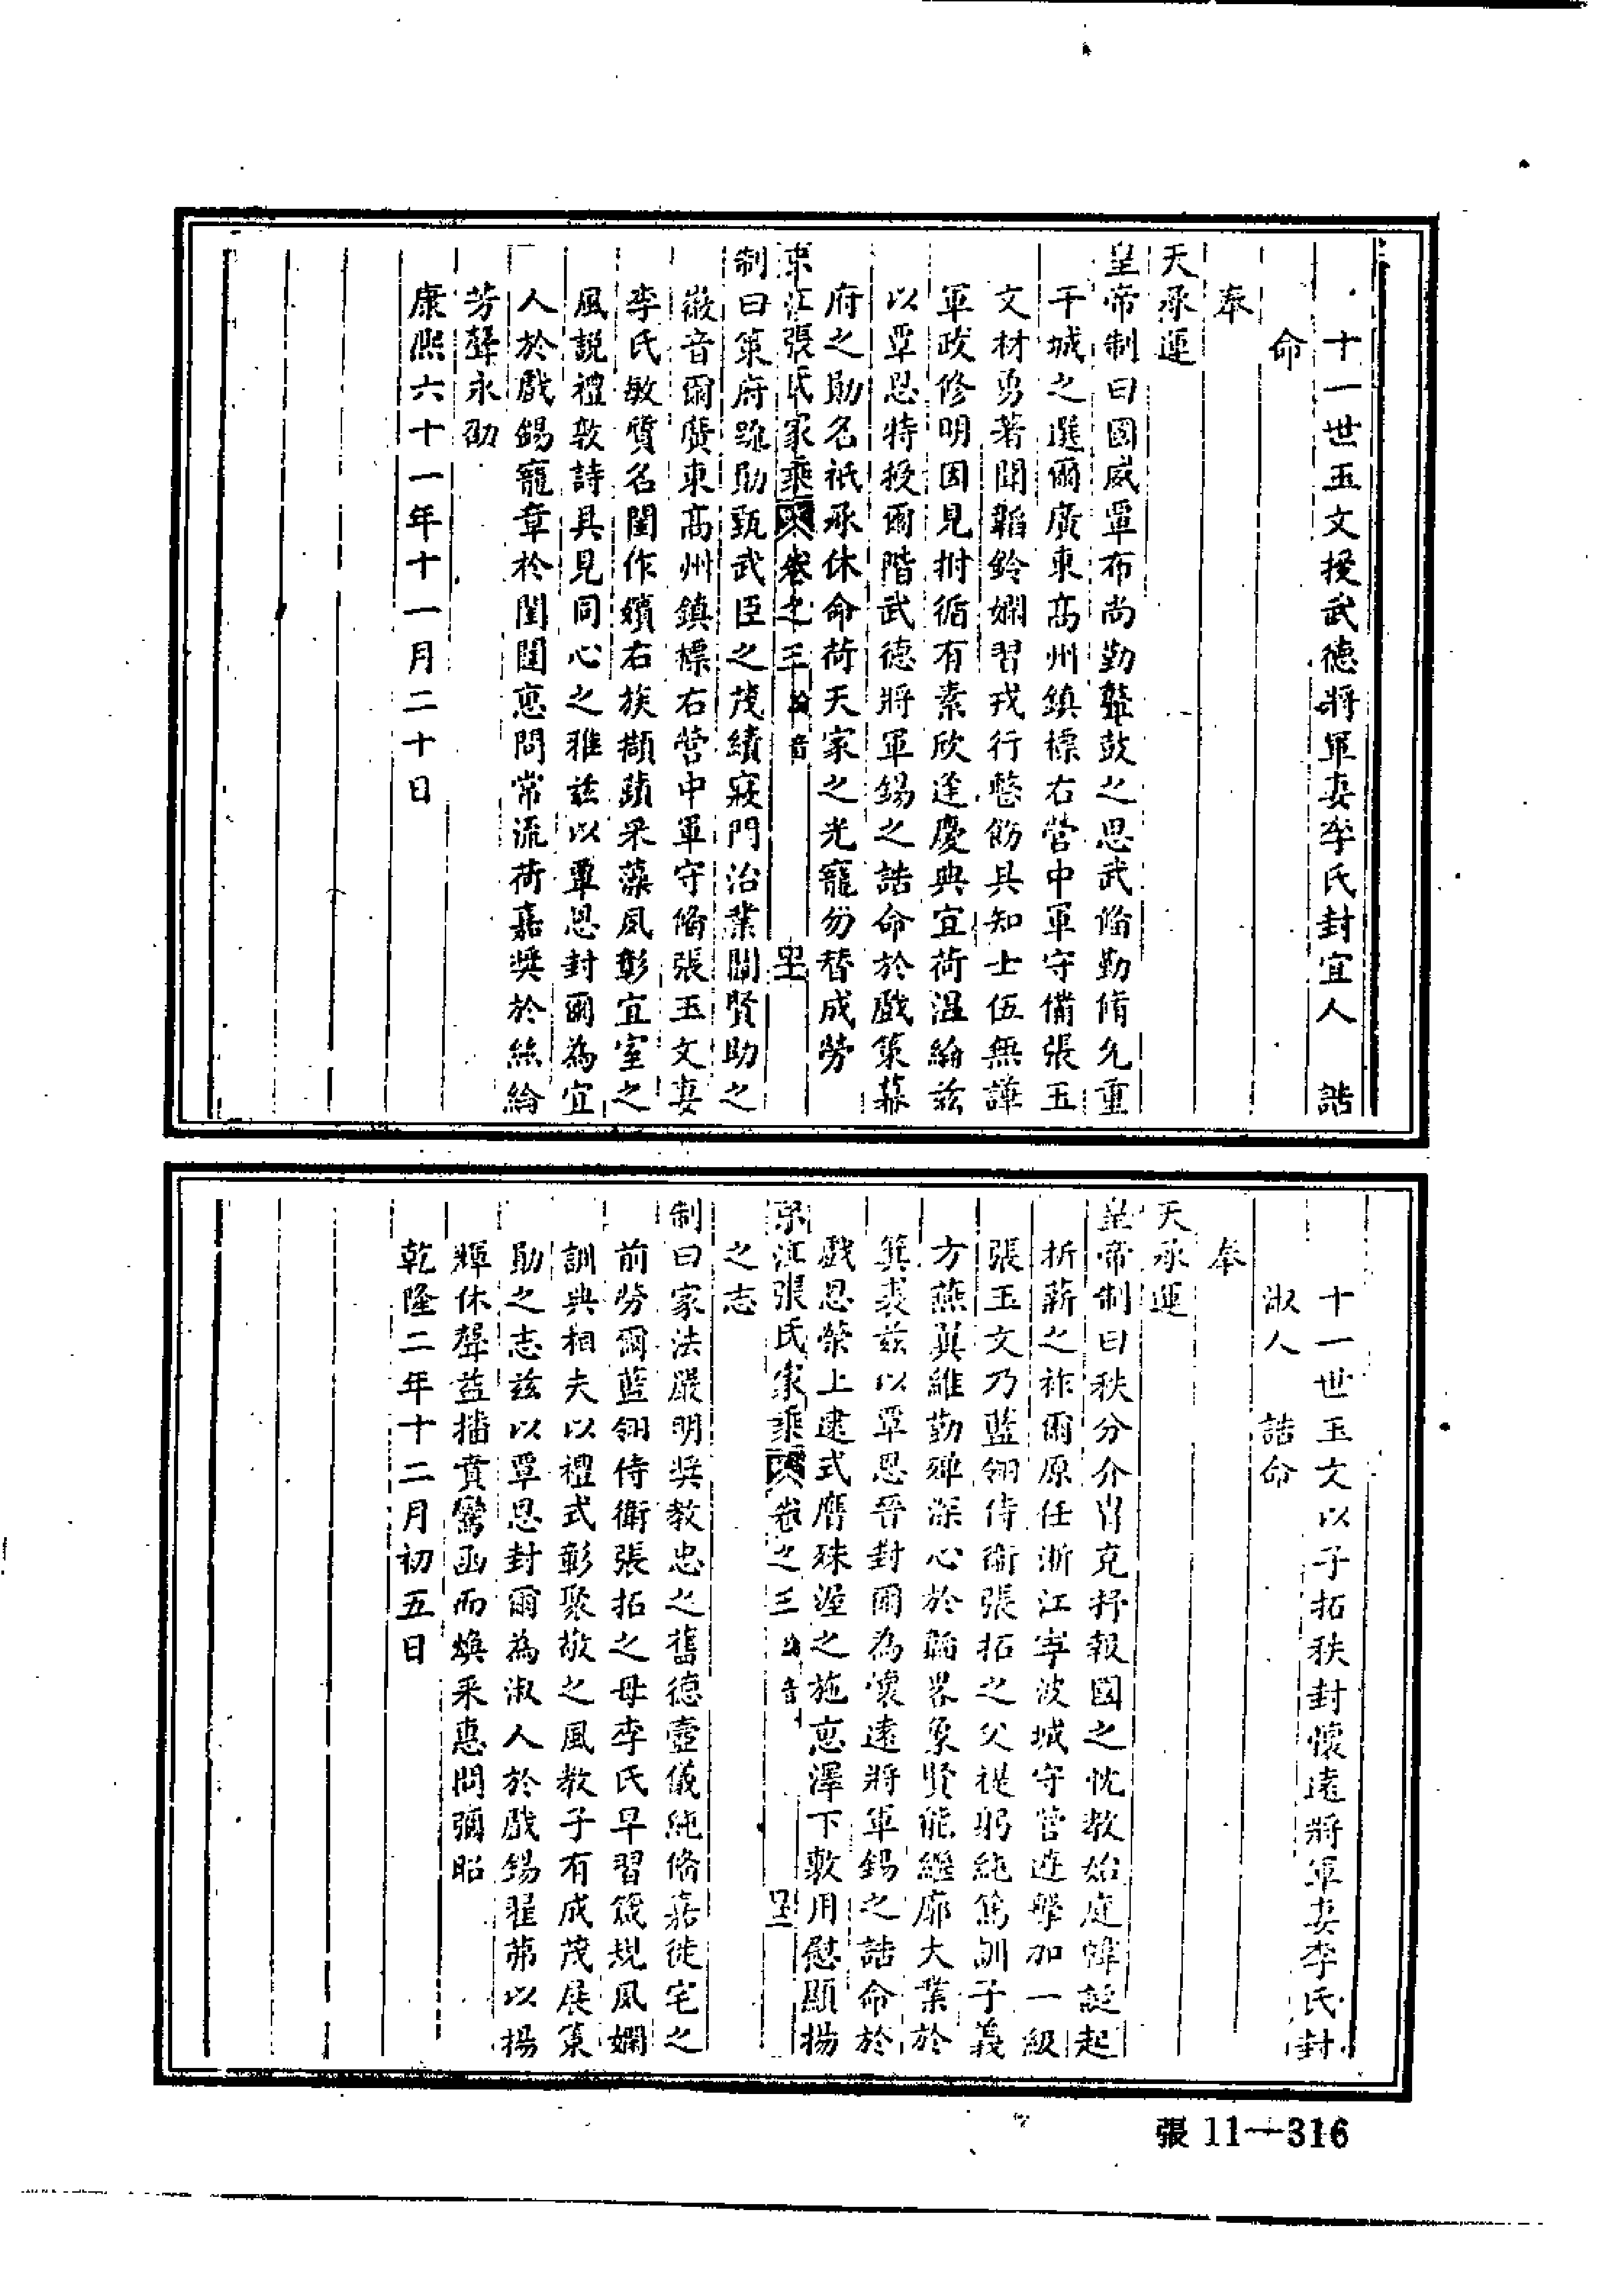 十一世玉文授武德將軍妻李氏封宜人　誥
命
奉
天承運
皇帝制曰國威覃布尚勤鼙鼓之思武備勤脩允重
干城之選爾廣東高州鎮標右營中軍守備張玉
文材勇著聞韜鈐嫻習戎行慗飭具知士伍無譁
軍政修明因見拊循有素欣逢慶典宜荷溫綸茲
以覃恩特授爾階武德將軍錫之誥命於戲策幕
府之勛名祇承休命荷天家之光寵勿替成勞
京江張氏家乘　卷之三　綸音
制曰策府䟽勛甄武臣之茂績寢門治業闡賢助之
徽音爾廣東高州鎮標右營中軍守備張玉文妻
李氏敏質名閨作嬪右族擷蘋采藻夙彰宜室之
風說禮敦詩具見同心之雅茲以覃恩封爾為宜
人於戲錫寵章於閨閫惠問常流荷嘉獎於絲綸
芳聲永劭
康熙六十一年十一月二十日
十一世玉文以子拓秩封懷遠將軍妻李氏封
淑人　誥命
奉
天承運
皇帝制曰秩分介胄克抒報國之忱教始庭幃誕起
折薪之祚爾原任浙江寧波城守營遊擊加一級
張玉文乃藍翎侍衛張拓之父褆躬純篤訓子義
方燕翼維勤殫深心於韜畧象賢能繼廓大業於
箕裘茲以覃恩晉封爾為懷遠將軍錫之誥命於
戲恩榮上逮式膺殊渥之施惠澤下敷用慰顯揚
京江張氏家乘　卷之三　綸音
之志
制曰家法嚴明奬教忠之舊德壼儀純脩嘉徙宅之
前勞爾藍翎侍衛張拓之母李氏早習箴規夙嫻
訓典相夫以禮式彰聚敬之風教子有成茂展策
勛之志茲以覃恩封爾為淑人於戲錫翟茀以揚
輝休聲益播賁鸞函而煥采惠問彌昭
乾隆二年十二月初五日
張 11—316